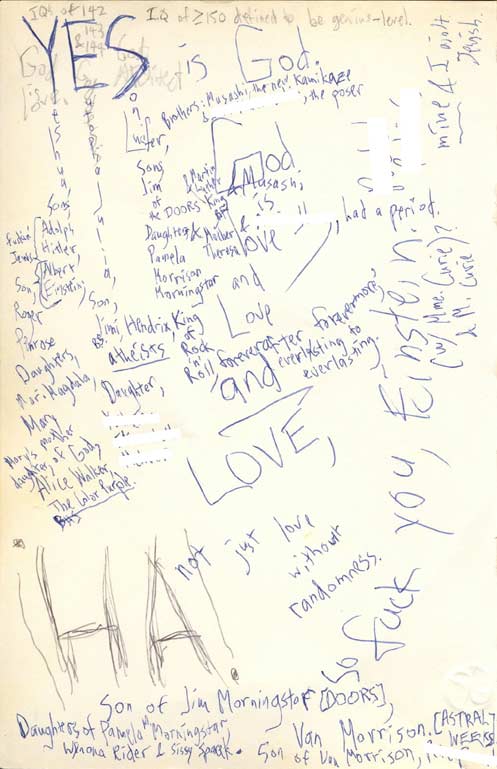 IQs of 142
143
& 144
IQ of ≥150 defined to be genius-level.
God is
love.
YES is God.
Lucifer,
Brothers: Musashi, the new Kamikaze
, the poser
Sons
Jim
of
the DOORS
& Martin
Luther
King
& Musashi,
God
is
love
, had a period.
Daughters
Pamela
Morrison
Morningstar
& Mother
Theresa
and
Love
and
LOVE,
not just love
without
randomness.
forever after forevermore,
everlasting to
everlasting.
Yeshua,
Sons
Adolph
Hitler,
Albert
Einstein,
Son,
Roger
Penrose
Daughters,
Mari Magdala,
Mary
Mary's mother
daughter, of God,
Alice Walker,
The Color Purple
Julia,
Son,
Jimi Hendrix, King
of
Rock
'n'
Roll,
atheists
Daughter,
mine & I ain't
Jewish.
So fuck you, Einstein.
(w/ Mme. Curie)?
& M. Curie
HA!
Son of Jim Morningstar [DOORS],
Daughters of Pamela Morningstar,
Winona Rider & Sissy Spacek.
Van Morrison. [ASTRAL
WEEKS]
Son of Van Morrison,